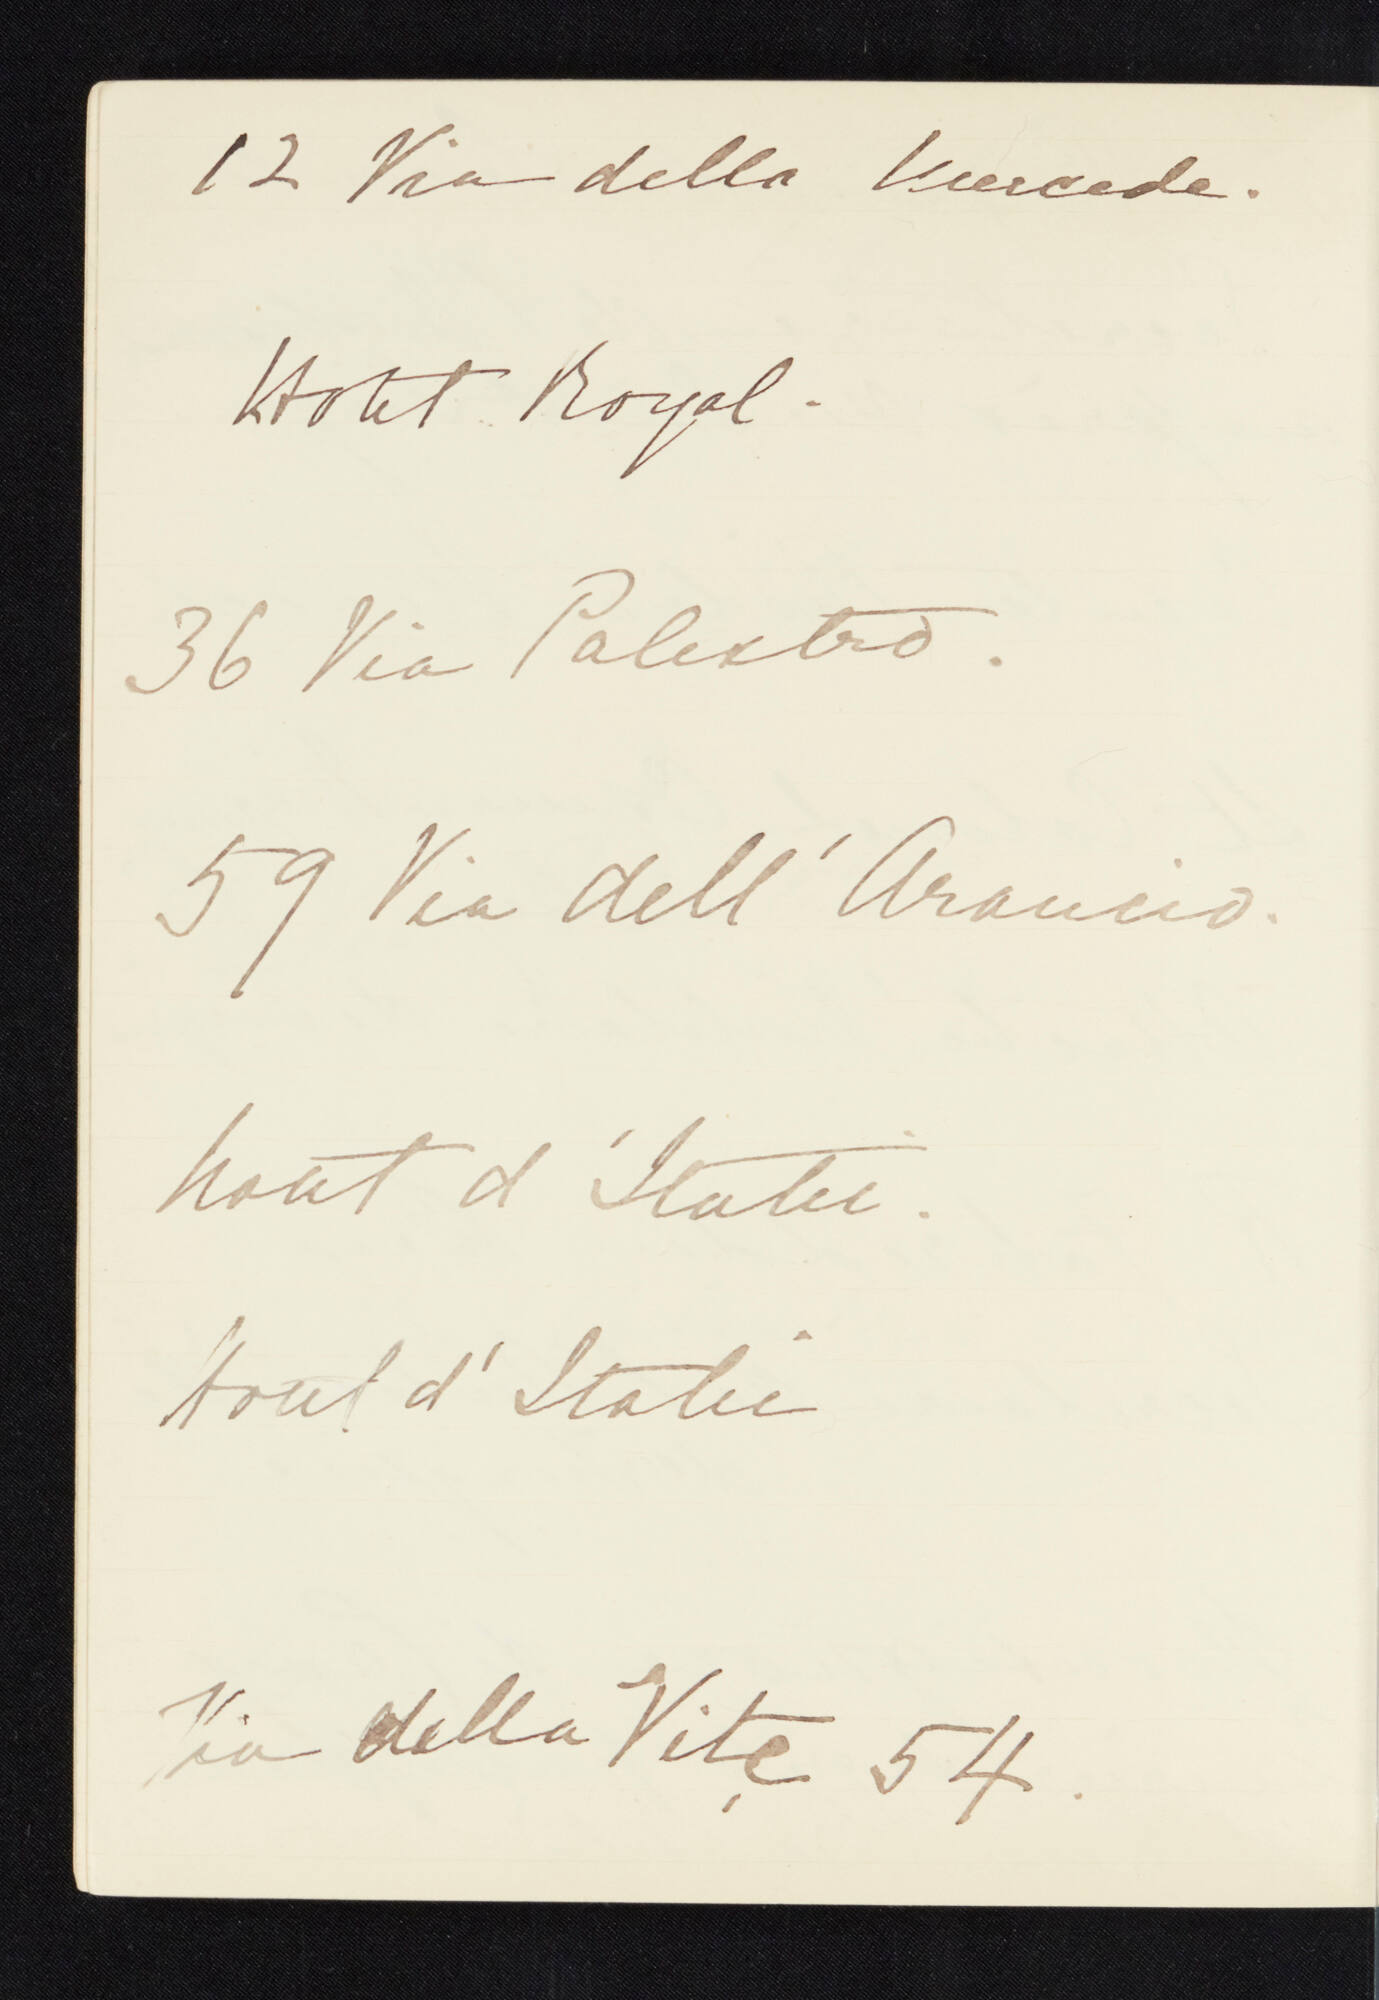 12 Via della Mercede.
Hotel Royal.
36 Via Palestro.
59 Via dell' Arancio.
hotel d'Italie.
Hotel d'Italie
Via della Vite 54.